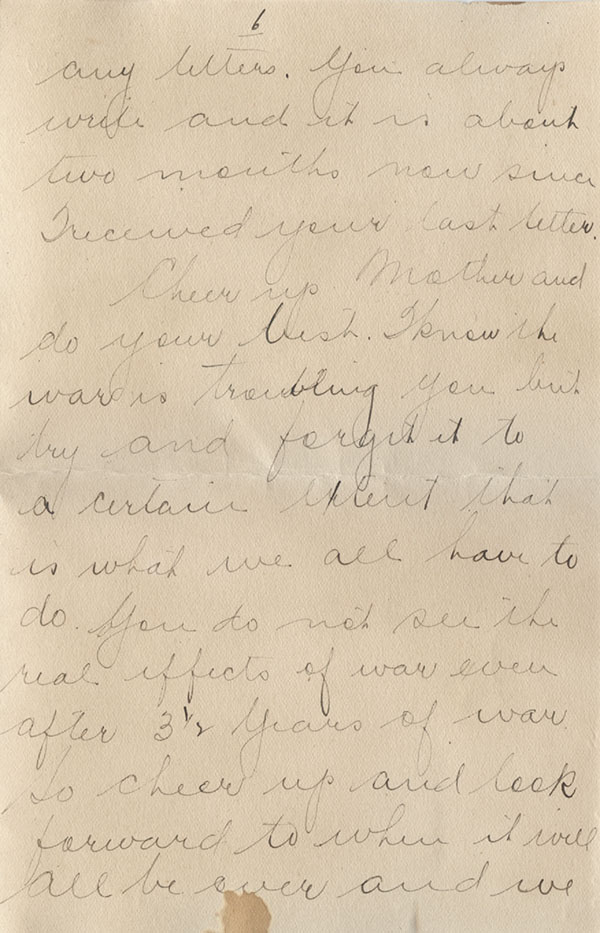 6
any letters. You always
write and it is about
two months now since
I received your last letter.
Cheer up Mother and
do your best. I know the
war is troubling you but
try and forget it to
a certain extent that
is what we all have to
do. You do not see the
real effects of war even
after 3 1/2 years of war
So cheer up and look
forward to when it will
all be over and we